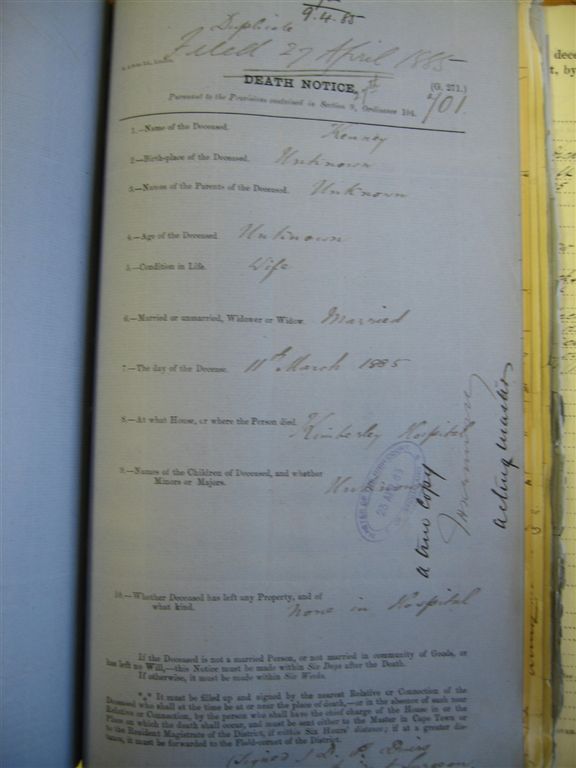 9.4.85
Duplicate
Filed 27 April 1885
DEATH NOTICE,
(G. 271.)
Pursuant to the Provisions contained in Section 9, Ordinance 104.
701.
1.—Name of the Deceased.
2.—Birth-place of the Deceased. Unknown
3.—Names of the Parents of the Deceased. Unknown
4.—Age of the Deceased. Unknown
5.—Condition in Life. Wife
6.—Married or unmarried, Widower or Widow. Married
7.—The day of the Decease. 11th March 1885
8.—At what House, or where the Person died. Kimberley Hospital
9.—Names of the Children of Deceased, and whether
Minors or Majors. Unknown
a true copy
acting master
10.—Whether Deceased has left any Property, and of
what kind. none in Hospital
If the Deceased is not a married Person, or not married in community of Goods, or
has left no Will,—this Notice must be made within Six Days after the Death.
If otherwise, it must be made within Six Weeks.
*** It must be filled up and signed by the nearest Relative or Connection of the
Deceased who shall at the time be at or near the place of death,—or in the absence of such near
Relative or Connection, by the person who shall have the chief charge of the House in or the
Place on which the death shall occur, and must be sent either to the Master in Cape Town or
to the Resident Magistrate of the District, if within Six Hours' distance; if at a greater dis-
tance, it must be forwarded to the Field-cornet of the District.
(Signed)